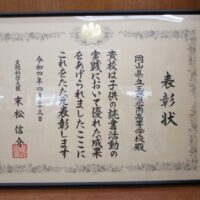 表彰状
岡山県立玉野光南高等学校殿
貴校は子供の読書活動の
実践において優れた成果
をあげられましたここに
これをたたえ表彰します
令和四年四月二十三日
文部科学大臣
末松信介